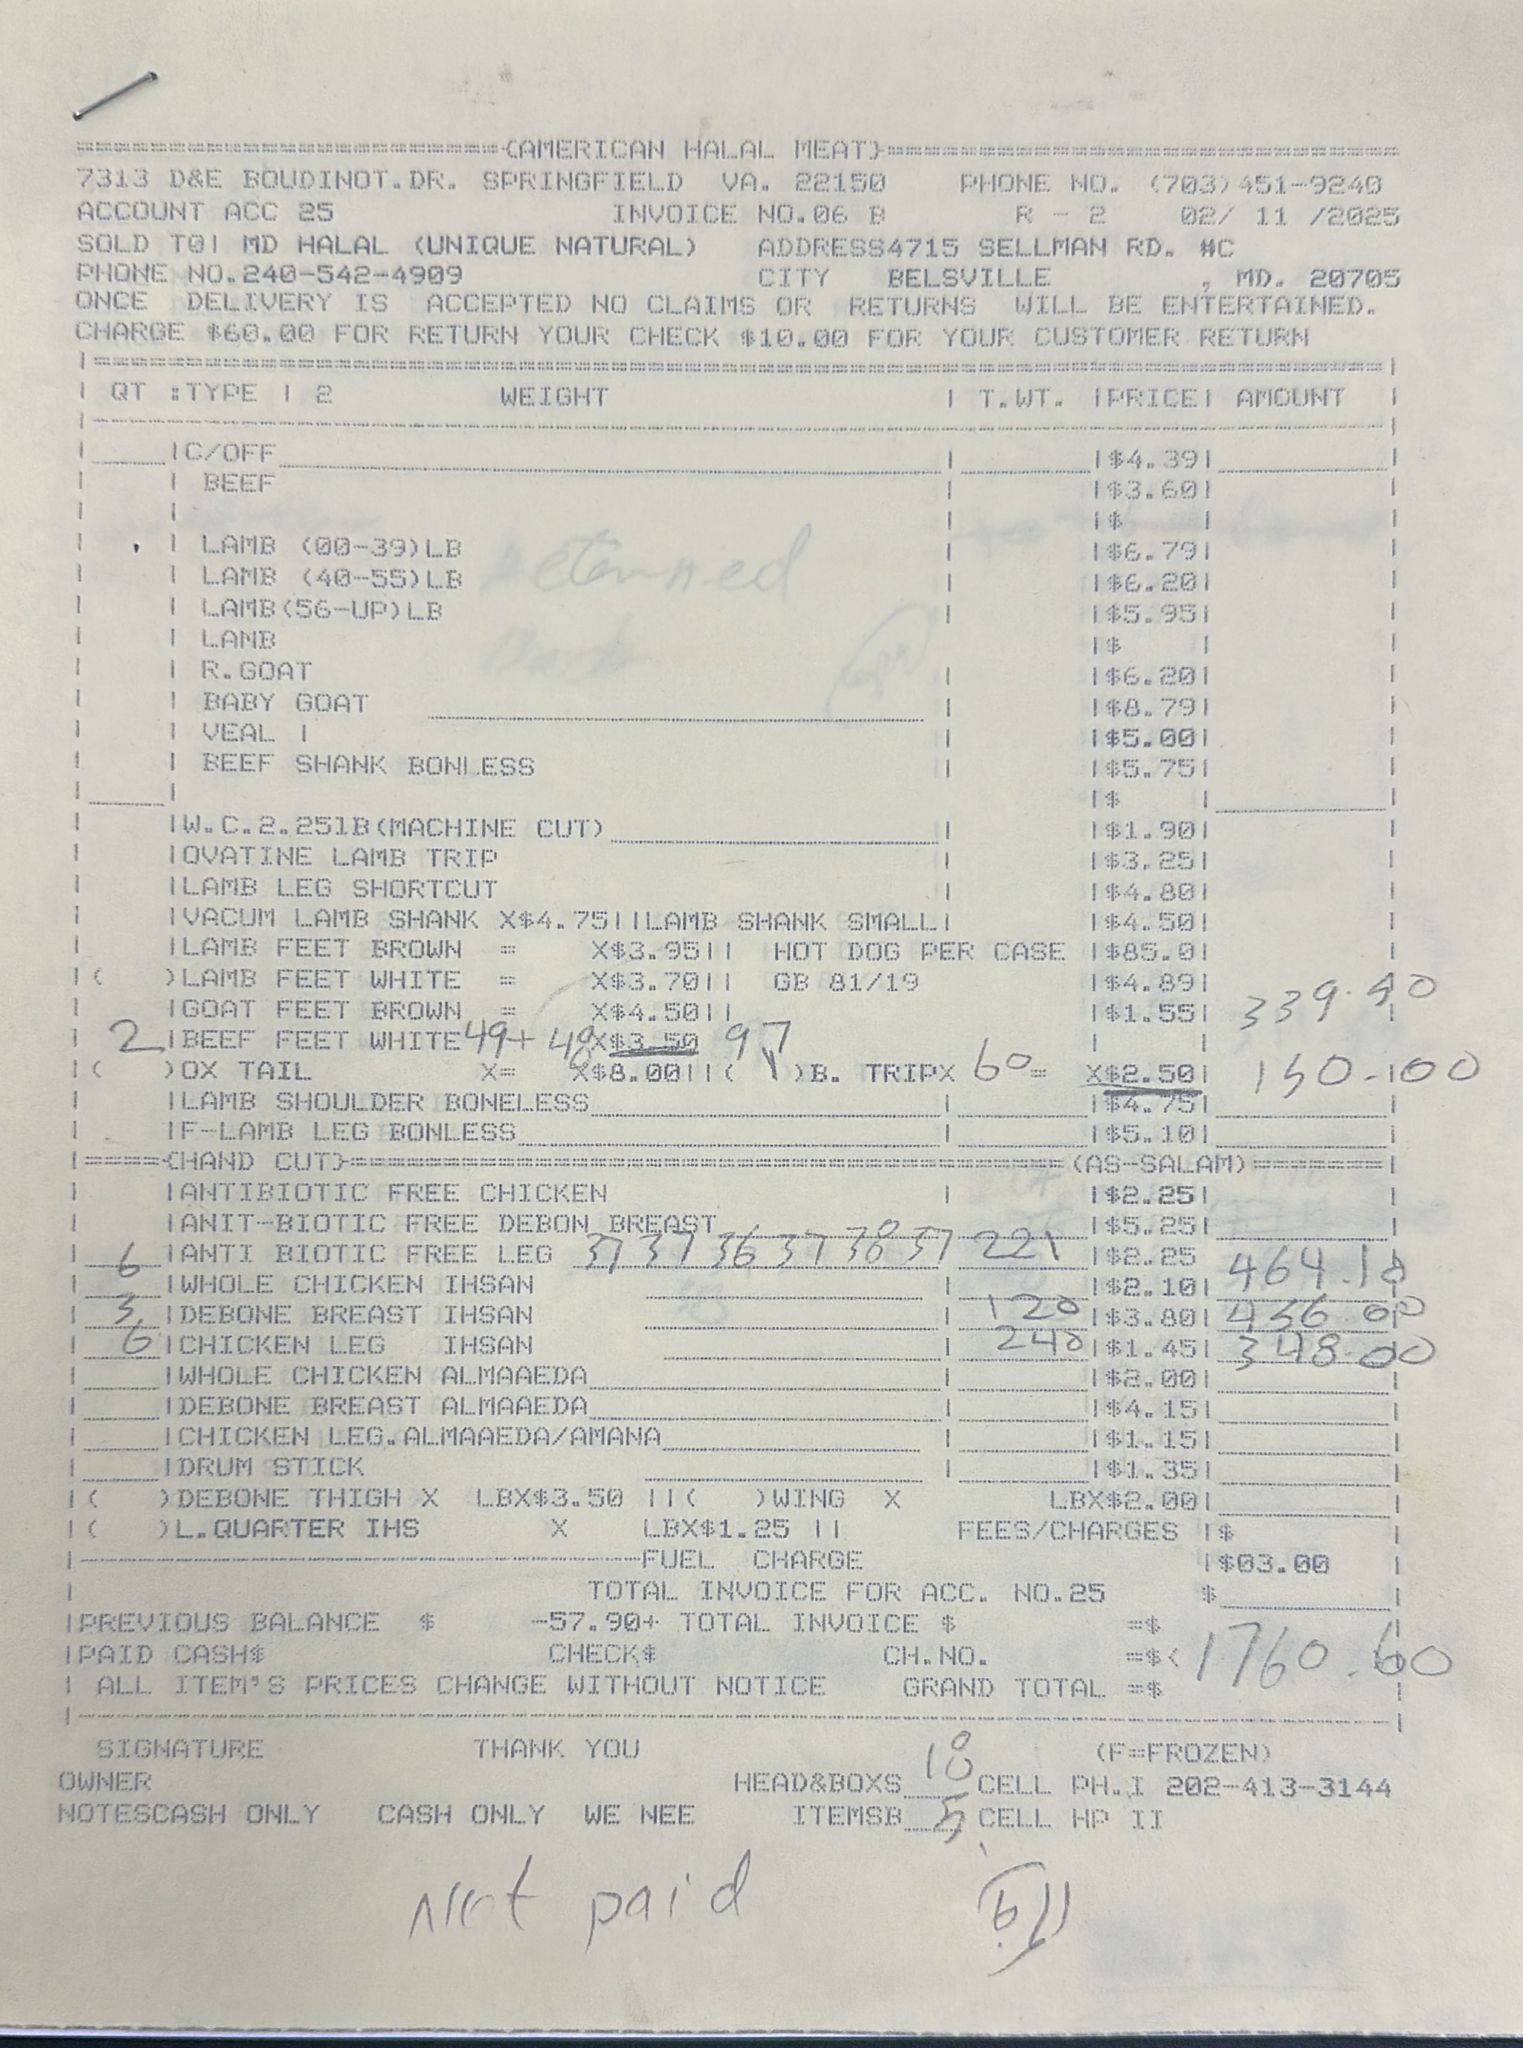 {AMERICAN HALAL MEAT}
7313 D&E BOUDINOT.DR. SPRINGFIELD VA. 22150 PHONE NO. (703)451-9240
ACCOUNT ACC 25 INVOICE NO.06 B R - 2 02/ 11 /2025
SOLD TO| MD HALAL (UNIQUE NATURAL) ADDRESS4715 SELLMAN RD. #C
PHONE NO.240-542-4909 CITY BELSVILLE , MD. 20705
ONCE DELIVERY IS ACCEPTED NO CLAIMS OR RETURNS WILL BE ENTERTAINED.
CHARGE $60.00 FOR RETURN YOUR CHECK $10.00 FOR YOUR CUSTOMER RETURN
| QT :TYPE | 2 WEIGHT | T.WT. |PRICE| AMOUNT
|C/OFF |$4.39|
| BEEF |$3.60|
|$ |
| LAMB (00-39)LB |$6.79|
| LAMB (40-55)LB |$6.20|
| LAMB(56-UP)LB |$5.95|
| LAMB |$ |
| R.GOAT |$6.20|
| BABY GOAT |$8.79|
| VEAL | |$5.00|
| BEEF SHANK BONLESS |$5.75|
|$ |
|W.C.2.25lB(MACHINE CUT) |$1.90|
|OVATINE LAMB TRIP |$3.25|
|LAMB LEG SHORTCUT |$4.80|
|VACUM LAMB SHANK X$4.75||LAMB SHANK SMALL| |$4.50|
|LAMB FEET BROWN = X$3.95|| HOT DOG PER CASE |$85.0|
|( )LAMB FEET WHITE = X$3.70|| GB 81/19 |$4.89|
|GOAT FEET BROWN = X$4.50|| |$1.55| 339.50
2 |BEEF FEET WHITE 49+ 48 X$3.50 97
|( )OX TAIL X= X$8.00||( 1 )B. TRIPX 60 = X$2.50| 150.00
|LAMB SHOULDER BONELESS |$4.75|
|F-LAMB LEG BONLESS |$5.10|
|=====(HAND CUT)====(AS-SALAM)=======|
|ANTIBIOTIC FREE CHICKEN |$2.25|
|ANIT-BIOTIC FREE DEBON BREAST |$5.25|
6 |ANTI BIOTIC FREE LEG 37 37 36 37 38 37 221 |$2.25 464.10
|WHOLE CHICKEN IHSAN |$2.10|
3 |DEBONE BREAST IHSAN 120 |$3.80| 456.00
6 |CHICKEN LEG IHSAN 240 |$1.45| 348.00
|WHOLE CHICKEN ALMAAEDA |$2.00|
|DEBONE BREAST ALMAAEDA |$4.15|
|CHICKEN LEG.ALMAAEDA/AMANA |$1.15|
|DRUM STICK |$1.35|
|( )DEBONE THIGH X LBX$3.50 ||( )WING X LBX$2.00|
|( )L.QUARTER IHS X LBX$1.25 || FEES/CHARGES |$
FUEL CHARGE |$03.00
TOTAL INVOICE FOR ACC. NO.25 $
|PREVIOUS BALANCE $ -57.90+ TOTAL INVOICE $ =$
|PAID CASH$ CHECK$ CH.NO. =$< 1760.60
| ALL ITEM'S PRICES CHANGE WITHOUT NOTICE GRAND TOTAL =$
SIGNATURE THANK YOU (F=FROZEN)
OWNER HEAD&BOXS 18 CELL PH.I 202-413-3144
NOTESCASH ONLY CASH ONLY WE NEE ITEMSB 5 CELL HP II
Not paid